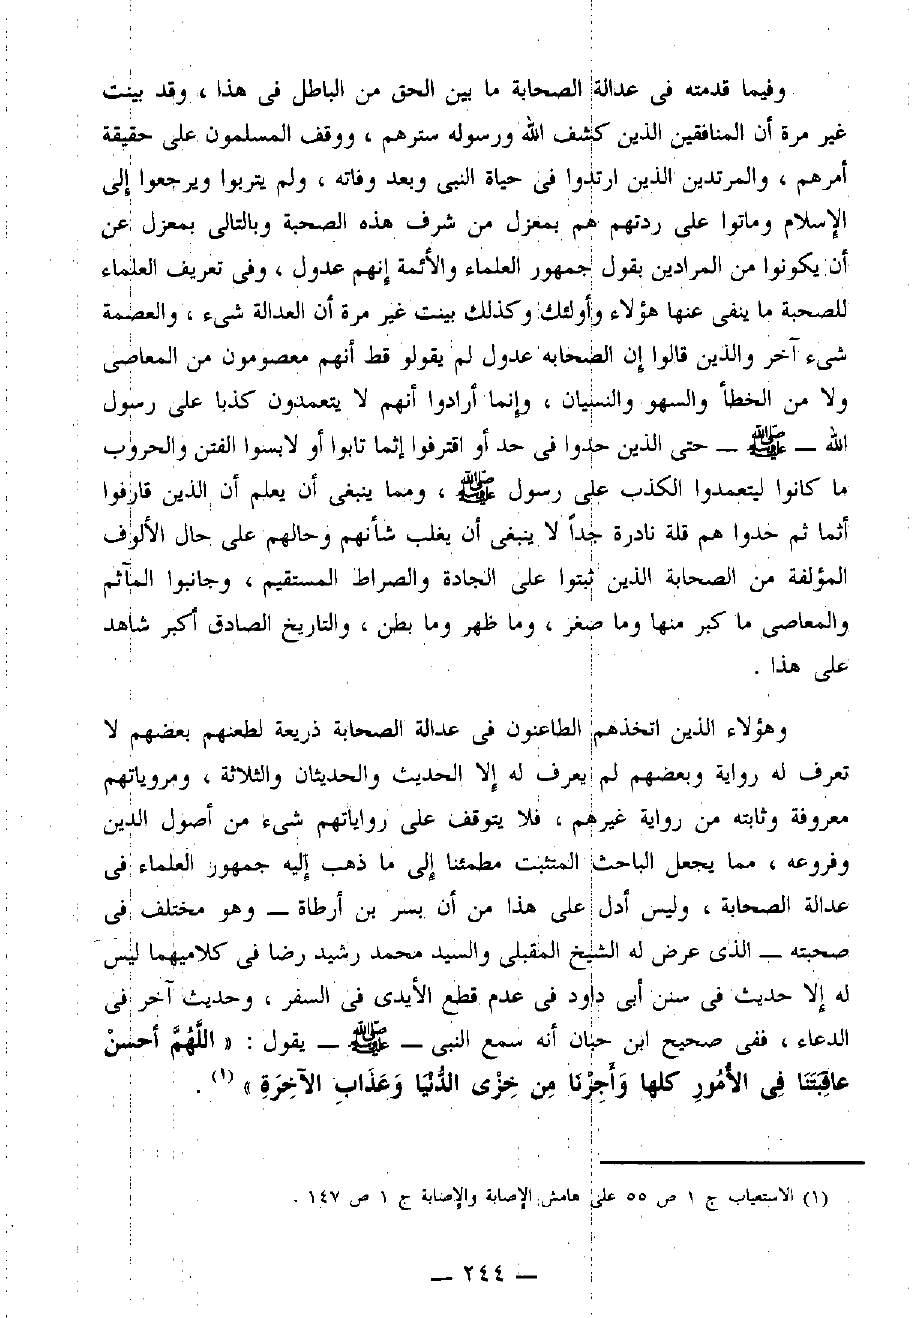 وفيما قدمته فى عدالة الصحابة ما بين الحق من الباطل فى هذا ، وقد بينت
غير مرة أن المنافقين الذين كشف الله ورسوله سترهم ، ووقف المسلمون على حقيقة
أمرهم ، والمرتدين الذين ارتدوا فى حياة النبى وبعد وفاته ، ولم يتربوا ويرجعوا إلى
الإسلام وماتوا على ردتهم هم بمعزل من شرف هذه الصحبة وبالتالى بمعزل عن
أن يكونوا من المرادين بقول جمهور العلماء والأئمة إنهم عدول ، وفى تعريف العلماء
للصحبة ما ينفى عنها هؤلاء وأولئك وكذلك بينت غير مرة أن العدالة شىء ، والعصمة
شىء آخر والذين قالوا إن الصحابه عدول لم يقولو قط أنهم معصومون من المعاصى
ولا من الخطأ والسهو والنسيان ، وإنما أرادوا أنهم لا يتعمدون كذبا على رسول
الله – ﷺ – حتى الذين حدوا فى حد أو اقترفوا إثما تابوا أو لابسوا الفتن والحروب
ما كانوا ليتعمدوا الكذب على رسول ﷺ ، ومما ينبغى أن يعلم أن الذين قارفوا
أثما ثم حدوا هم قلة نادرة جداً لا ينبغى أن يغلب شأنهم وحالهم على حال الألوف
المؤلفة من الصحابة الذين ثبتوا على الجادة والصراط المستقيم ، وجانبوا المآثم
والمعاصى ما كبر منها وما صغر ، وما ظهر وما بطن ، والتاريخ الصادق أكبر شاهد
على هذا .
وهؤلاء الذين اتخذهم الطاعنون فى عدالة الصحابة ذريعة لطعنهم بعضهم لا
تعرف له رواية وبعضهم لم يعرف له إلا الحديث والحديثان والثلاثة ، ومروياتهم
معروفة وثابته من رواية غيرهم ، فلا يتوقف على رواياتهم شىء من أصول الدين
وفروعه ، مما يجعل الباحث المتثبت مطمئنا إلى ما ذهب إليه جمهور العلماء فى
عدالة الصحابة ، وليس أدل على هذا من أن بسر بن أرطاة – وهو مختلف فى
صحبته – الذى عرض له الشيخ المقبلى والسيد محمد رشيد رضا فى كلاميهما ليس
له إلا حديث فى سنن أبى داود فى عدم قطع الأيدى فى السفر ، وحديث آخر فى
الدعاء ، ففى صحيح ابن حبان أنه سمع النبى – ﷺ – يقول : « اللَّهُمَّ أحسنْ
عاقِبَتَنَا فِى الأُمُورِ كلها وَأَجِرْنَا مِن خِزْى الدُّنْيَا وَعَذَابِ الآخِرَةِ » (١) .
(١) الاستعياب ج ١ ص ٥٥ على هامش الإصابة والإصابة ج ١ ص ١٤٧ .
– ٢٤٤ –